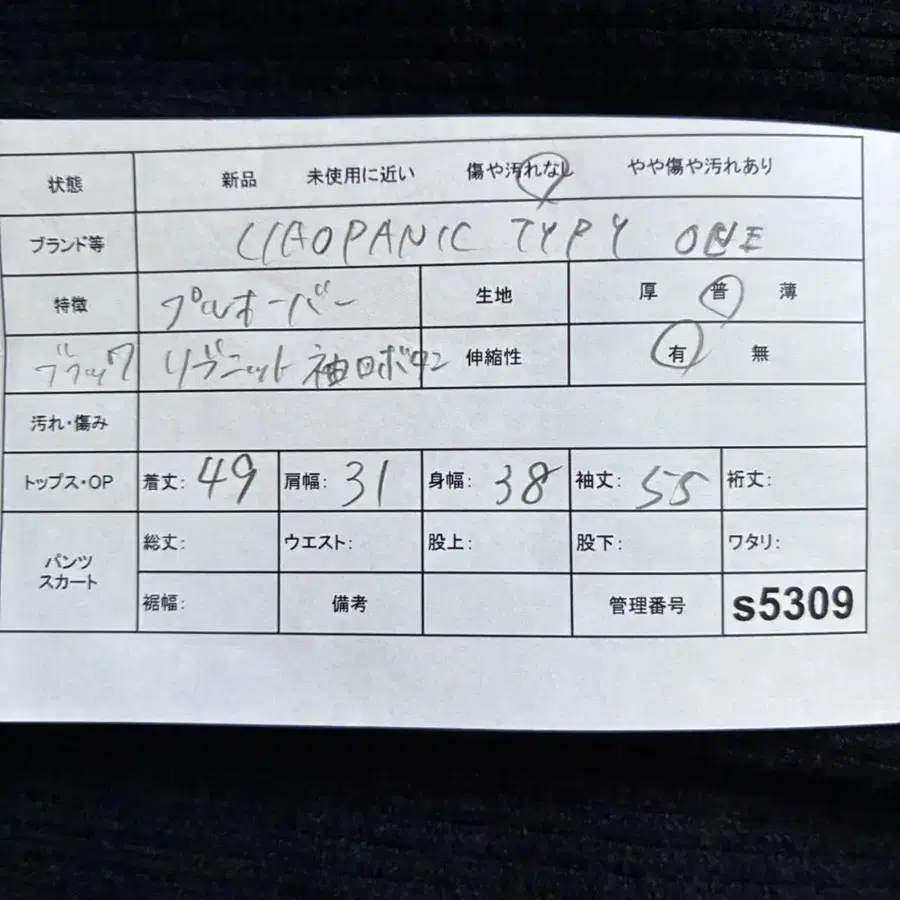 状態 新品 未使用に近い 傷や汚れなし やや傷や汚れあり
ブランド等 CIAOPANIC TYPY ONE
特徴 プルオーバー 生地 厚 普 薄
ブラック リブニット 袖口ボタン 伸縮性 有 無
汚れ・傷み
トップス・OP 着丈: 49 肩幅: 31 身幅: 38 袖丈: 55 裄丈:
パンツ スカート 総丈: ウエスト: 股上: 股下: ワタリ:
裾幅: 備考 管理番号 s5309